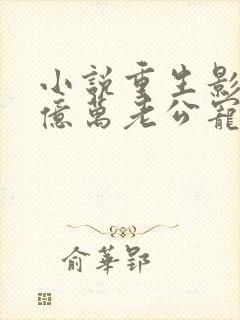 小說重生影
億萬老公寵
俞華郢